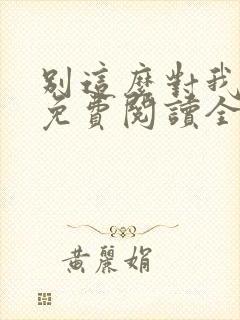 別這麼對我
免費閱讀全
黃麗娟